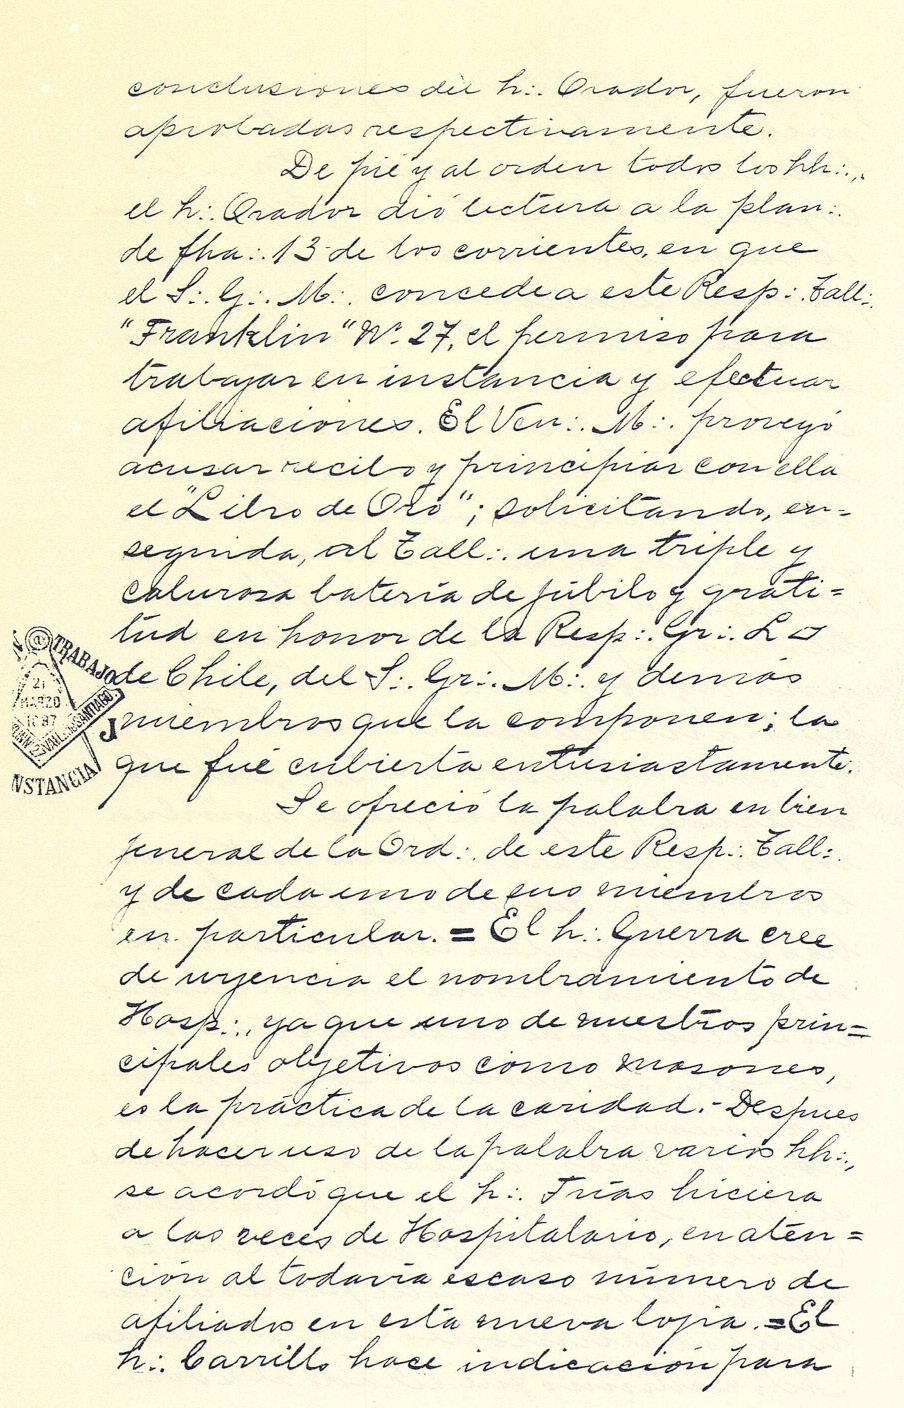 conclusiones del h∴ Orador, fueron
aprobadas respectivamente.
De pié y al orden todos los hh∴,
el h∴ Orador dió lectura a la plan∴
de fha∴ 13 de los corrientes, en que
el S∴ G∴ M∴ concede a este Resp∴ Tall∴
"Franklin" Nº 27, el permiso para
trabajar en instancia y efectuar
afiliaciones. El Ven∴ M∴ proveyó
acusar recibo y principiar con ella
el "Libro de Oro"; solicitando, en=
seguida, al Tall∴ una triple y
calurosa batería de júbilo y grati=
tud en honor de la Resp∴ Gr∴ L▱
de Chile, del S∴ Gr∴ M∴ y demás
miembros que la componen; la
que fué cubierta entusiastamente.
Se ofreció la palabra en bien
jeneral de la Ord∴ de este Resp∴ Tall∴
y de cada uno de sus miembros
en particular. = El h∴ Guerra cree
de urgencia el nombramiento de
Hosp∴, ya que uno de nuestros prin=
cipales objetivos como masones,
es la práctica de la caridad.- Despues
de hacer uso de la palabra varios hh∴,
se acordó que el h∴ Frías hiciera
a las veces de Hospitalario, en aten=
ción al todavía escaso número de
afiliados en esta nueva lojia. = El
h∴ Carrillo hace indicación para
TRABAJO
21
MARZO
SANTIAGO
NSTANCIA